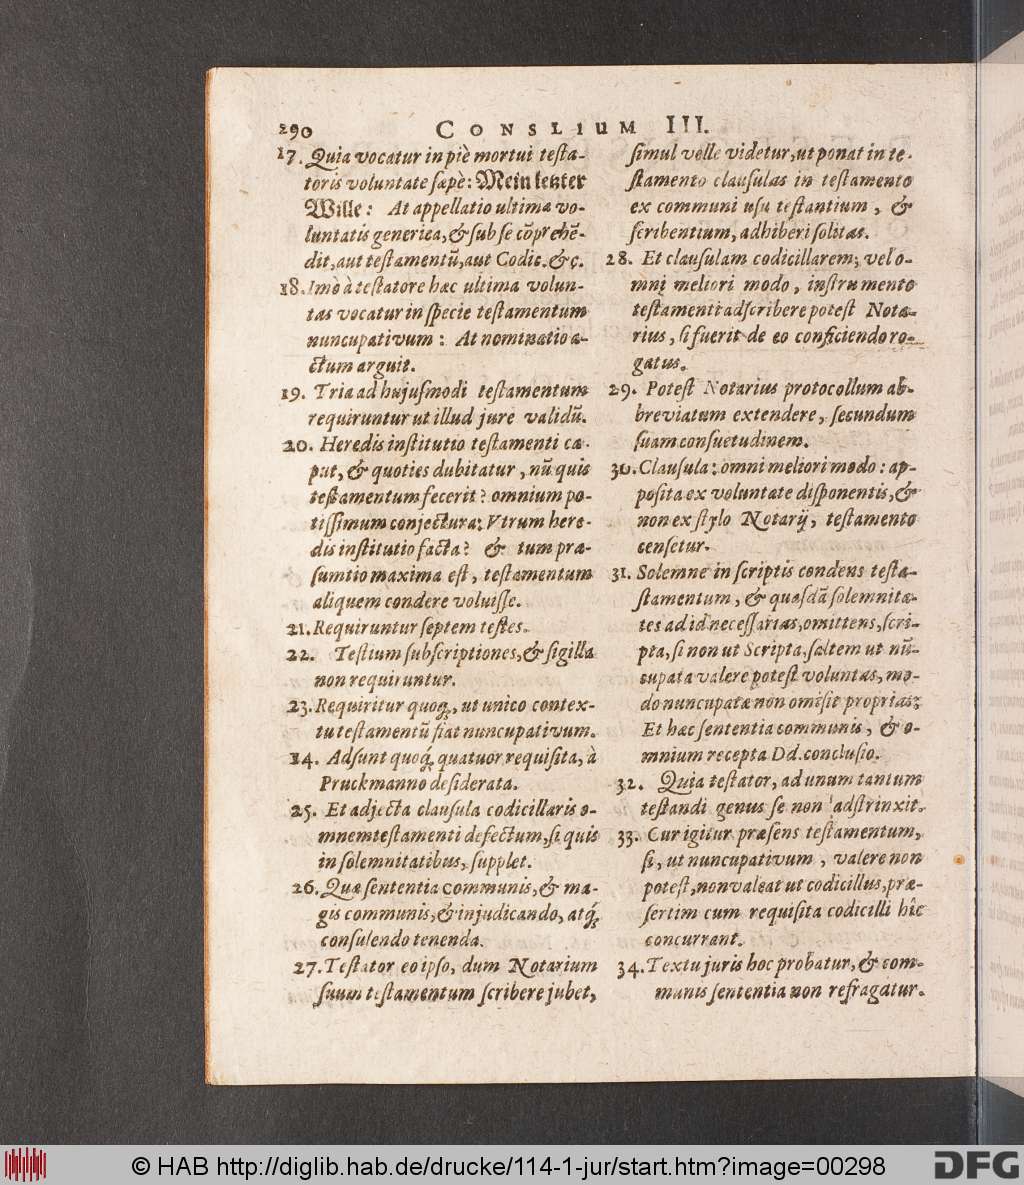 290
CONSLIUM III.
17. Quia vocatur in piè mortui testa-
toris voluntate sæpè: Mein letzter
Wille: At appellatio ultima vo-
luntatis generica, & sub se cõprehẽ-
dit, aut testamentũ, aut Codic. &c.
18. Imò à testatore hæc ultima volun-
tas vocatur in specie testamentum
nuncupativum: At nominatio a-
ctum arguit.
19. Tria ad hujusmodi testamentum
requiruntur ut illud jure validũ.
20. Heredis institutio testamenti ca-
put, & quoties dubitatur, nũ quis
testamentum fecerit? omnium po-
tissimum conjectura: Vtrum here-
dis institutio facta? & tum præ-
sumtio maxima est, testamentum
aliquem condere voluisse.
21. Requiruntur septem testes.
22. Testium subscriptiones, & sigilla
non requiruntur.
23. Requiritur quoq́;, ut unico contex-
tu testamentũ fiat nuncupativum.
14. Adsunt quoq́; quatuor requisita, à
Pruckmanno desiderata.
25. Et adjecta clausula codicillaris o-
mnem testamenti defectum, si quis
in solemnitatibus, supplet.
26. Quæ sententia communis, & ma-
gis communis, & in judicando, atq́;
consulendo tenenda.
27. Testator eo ipso, dum Notarium
suum testamentum scribere jubet,
simul velle videtur, ut ponat in te-
stamento clausulas in testamento
ex communi usu testantium, &
scribentium, adhiberi solitas.
28. Et clausulam codicillarem; vel o-
mni meliori modo, instrumento
testamenti adscribere potest Nota-
rius, si fuerit de eo conficiendo ro-
gatus.
29. Potest Notarius protocollum ab-
breviatum extendere, secundum
suam consuetudinem.
30. Clausula: omni meliori modo: ap-
posita ex voluntate disponentis, &
non ex stylo Notarij, testamento
censetur.
31. Solemne in scriptis condens testa-
stamentum, & quasdã solemnita-
tes ad id necessarias, omittens, scri-
pta, si non ut Scripta, saltem ut nũ-
cupata valere potest voluntas, mo-
do nuncupatæ non omisit proprias:
Et hæc sententia communis, & o-
mnium recepta Dd. conclusio.
32. Quia testator, ad unum tantum
testandi genus se non adstrinxit.
33. Cur igitur præsens testamentum,
si, ut nuncupativum, valere non
potest, non valeat ut codicillus, præ-
sertim cum requisita codicilli hîc
concurrant.
34. Textu juris hoc probatur, & com-
munis sententia non refragatur.
© HAB http://diglib.hab.de/drucke/114-1-jur/start.htm?image=00298
DFG